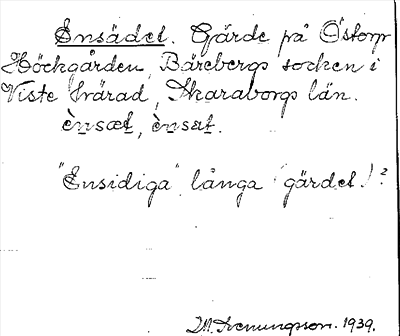 Ensädet. Gärde på Östorp
Höckgården, Bärebergs socken i
Viste härad, Skaraborgs län.
ènsæt, ènsat.
"Ensidiga" långa (gärdet)?
1939.